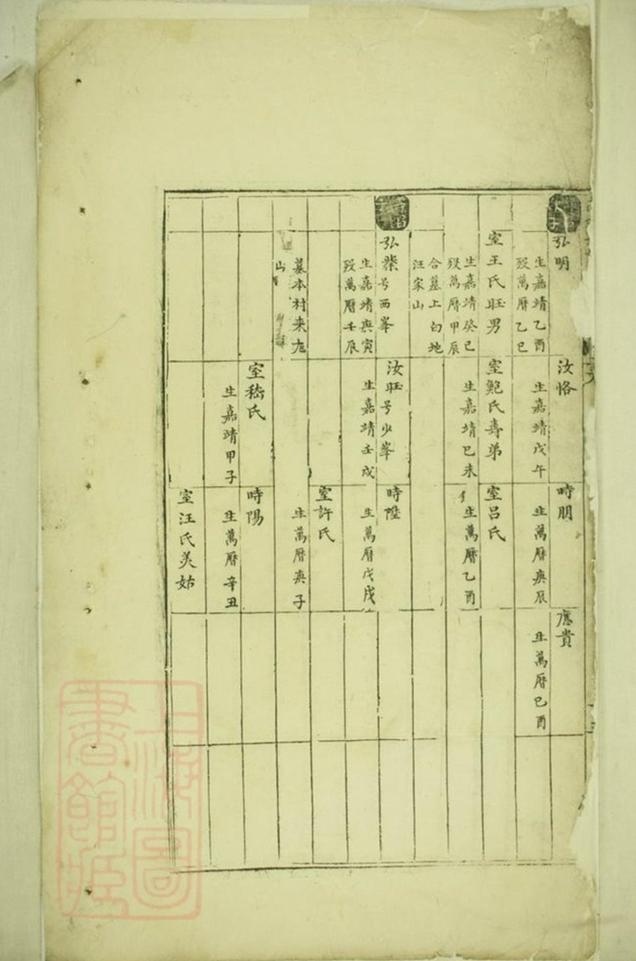 弘明
生嘉靖乙酉
歿萬曆乙巳
室王氏旺男
生嘉靖癸巳
歿萬曆甲辰
合墓上句地
汪家山
弘榮号西峯
生嘉靖庚寅
歿萬曆壬辰
墓本村来龙
山
汝恪
生嘉靖戊午
室鮑氏壽弟
生嘉靖己未
汝旺号少峯
生嘉靖壬戌
室嵇氏
生嘉靖甲子
時朋
生萬曆庚辰
室呂氏
生萬曆乙酉
時陞
生萬曆戊戌
室許氏
生萬曆庚子
時陽
生萬曆辛丑
室汪氏美姑
應貴
生萬曆己酉
上海圖
書館